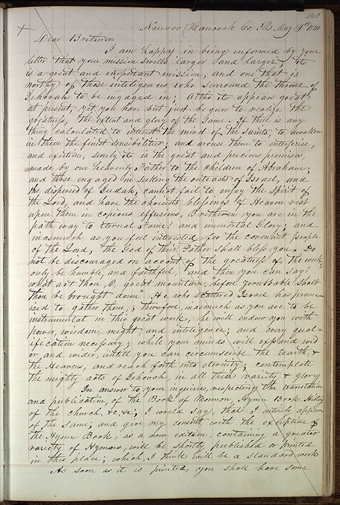 Nauvoo, Hancock Co. Ill. May 14th 1840
Dear Brethren
I am happy in being informed by your
letter that your mission swells "larger and larger"; it
is a great and important mission, and one that is
worthy of those intelligences who surround the throne of
Jehovah to be engaged in; altho it appears great
at present, yet you have but just begun to realize the
greatness, the extent and glory of the same. If there is any
thing calculated to interest the mind of the Saints, to awaken
in them the finest sensibilities; and arouse them to enterprise,
and exertion, surely it is the great and precious promises,
made by our heavenly Father to the children of Abraham;
and those engaged in seeking the outcasts of Israel, and
the dispersed of Judah, cannot fail to enjoy the Spirit of
the Lord, and have the choicest blessings of Heaven rest
upon them in copious effusions. Brethren you are in the
path way to Eternal Fame! and immortal Glory; and
inasmuch as you feel interested for the covenant people
of the Lord, the God of their Father shall bless you. Do
not be discouraged on account of the greatness of the work;
only be humble, and faithful, and then you can say:
what art thou O, great mountain, before Zerubabel shalt
thou be brought down. He who scattered Israel has prom
ised to gather them; therefore, inasmuch as you are to be
instrumental in this great work, he will endow you with
power, wisdom, might and inteligence; and every qual-
ification necessary; while your minds will expand wid
er and wider, untill you can circumscribe the Earth &
the Heavens, and reach forth into eternity; contemplate
the mighty acts of Jehovah, in all their variety & glory
In answer to your inquiries, respecting the translation
and publication, of the Book of Mormon, Hymn Book, History
of the church, &c &c; I would say, that I intirely approve
of the same, and give my consent with the exception of
the Hymn Book, as a new edition, containing a greater
variety of Hymns, will be shortly published or printed
in this place; which, I think will be a standard work
As soon as it is printed, you shall have some